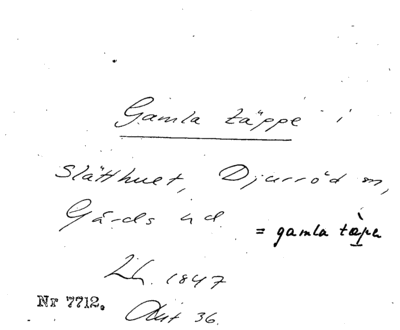 Gamla täppe i
Slätthuet, Djurröd m,
Gärds hd.
= gamla tàpe
Lh. 1847
Nr 7712.
Akt 36.